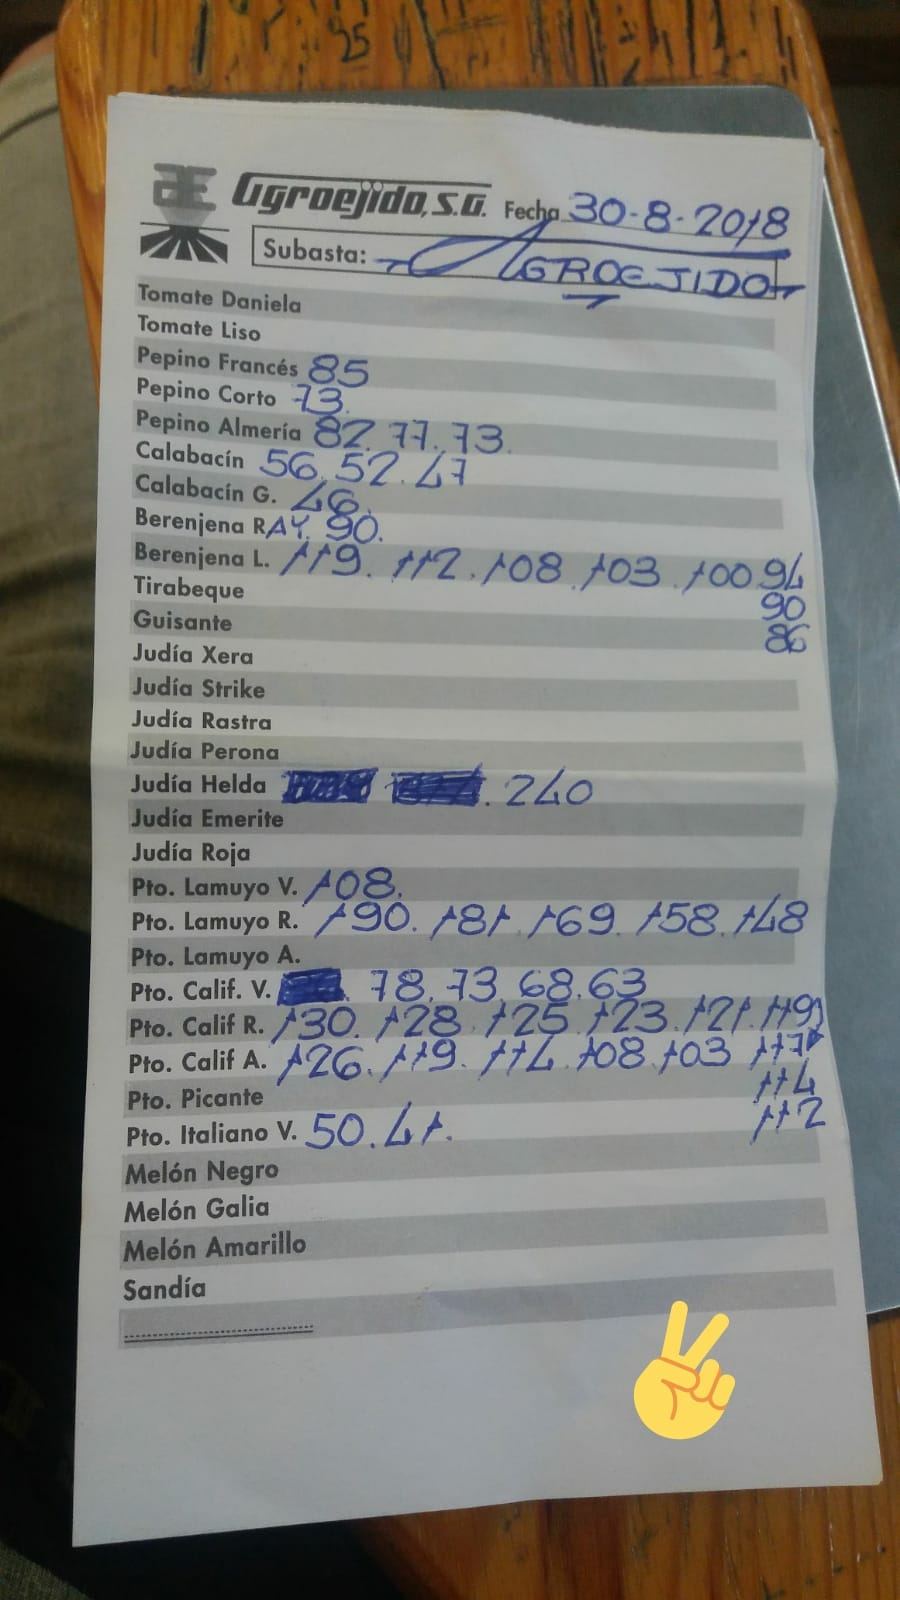 Agroejido, S.A. Fecha 30-8-2018
Subasta: AGROEJIDO
Tomate Daniela
Tomate Liso
Pepino Francés 85
Pepino Corto 73.
Pepino Almería 82. 77. 73.
Calabacín 56. 52. 47
Calabacín G. 46.
Berenjena RAY. 90.
Berenjena L. 119. 112. 108. 103. 100. 94
Tirabeque 90
Guisante 86
Judía Xera
Judía Strike
Judía Rastra
Judía Perona
Judía Helda . 240
Judía Emerite
Judía Roja
Pto. Lamuyo V. 108.
Pto. Lamuyo R. 190. 181. 169. 158. 148
Pto. Lamuyo A.
Pto. Calif. V. . 78. 73. 68. 63
Pto. Calif R. 130. 128. 125. 123. 121. 119
Pto. Calif A. 126. 119. 114. 108. 103 117
Pto. Picante 114
Pto. Italiano V. 50. 41. 112
Melón Negro
Melón Galia
Melón Amarillo
Sandía